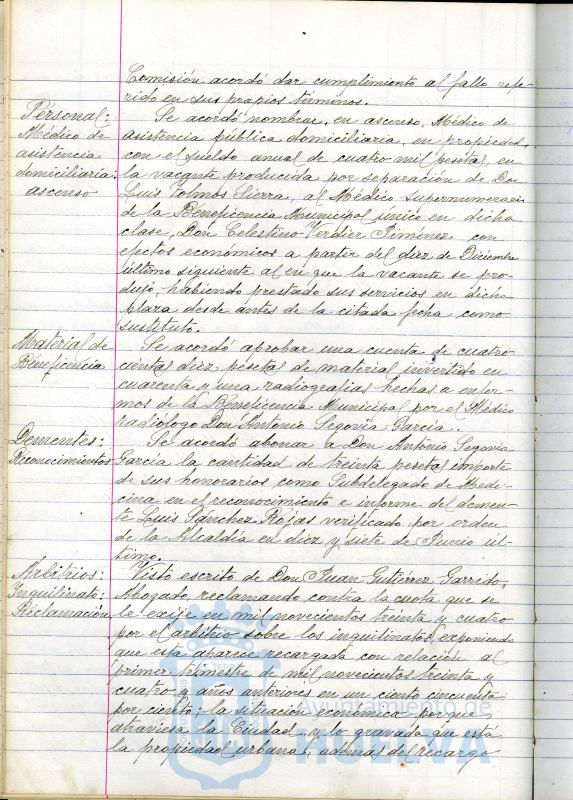 Comisión acordó dar cumplimiento al fallo refe-
rido en sus propios términos.
Personal:
Médico de
asistencia
domiciliaria:
ascenso
Se acordó nombrar, en ascenso, Médico de
asistencia pública domiciliaria, en propiedad,
con el sueldo anual de cuatro mil pesetas, en
la vacante producida por separación de Don
Luis Sierra, al Médico Supernumerario
de la Beneficencia Municipal único en dicha
clase, Don Celestino Verdier Jiménez, con
efectos económicos a partir del diez de Diciembre
último siguiente al en que la vacante se pro-
dujo, habiendo prestado sus servicios en dicha
plaza desde antes de la citada fecha como
sustituto.
Material de
Beneficencia
Se acordó aprobar una cuenta de cuatro-
cientas diez pesetas de material invertido en
cuarenta y una radiografías hechas a enfer-
mos de la Beneficencia Municipal por el Médico
radiólogo Don Antonio Segovia García.
Dementes:
Reconocimientos
Se acordó abonar a Don Antonio Segovia
García la cantidad de treinta pesetas importe
de sus honorarios como Subdelegado de Medi-
cina en el reconocimiento e informe del demen-
te Luis Sánchez Rojas verificado por orden
de la Alcaldía en diez y siete de Junio úl-
timo.
Arbitrios:
Inquilinato:
Reclamación
Visto escrito de Don Juan Gutiérrez Garrido,
Abogado, reclamando contra la cuota que se
le exije en mil novecientos treinta y cuatro
por el arbitrio sobre los inquilinatos, exponiendo
que esta aparece recargada con relación al
primer trimestre de mil novecientos treinta y
cuatro y años anteriores en un ciento cincuenta
por ciento; la situación económica porque
atraviesa la Ciudad, y lo gravada que está
la propiedad urbana, además del recargo
Ayuntamiento de
HUELVA